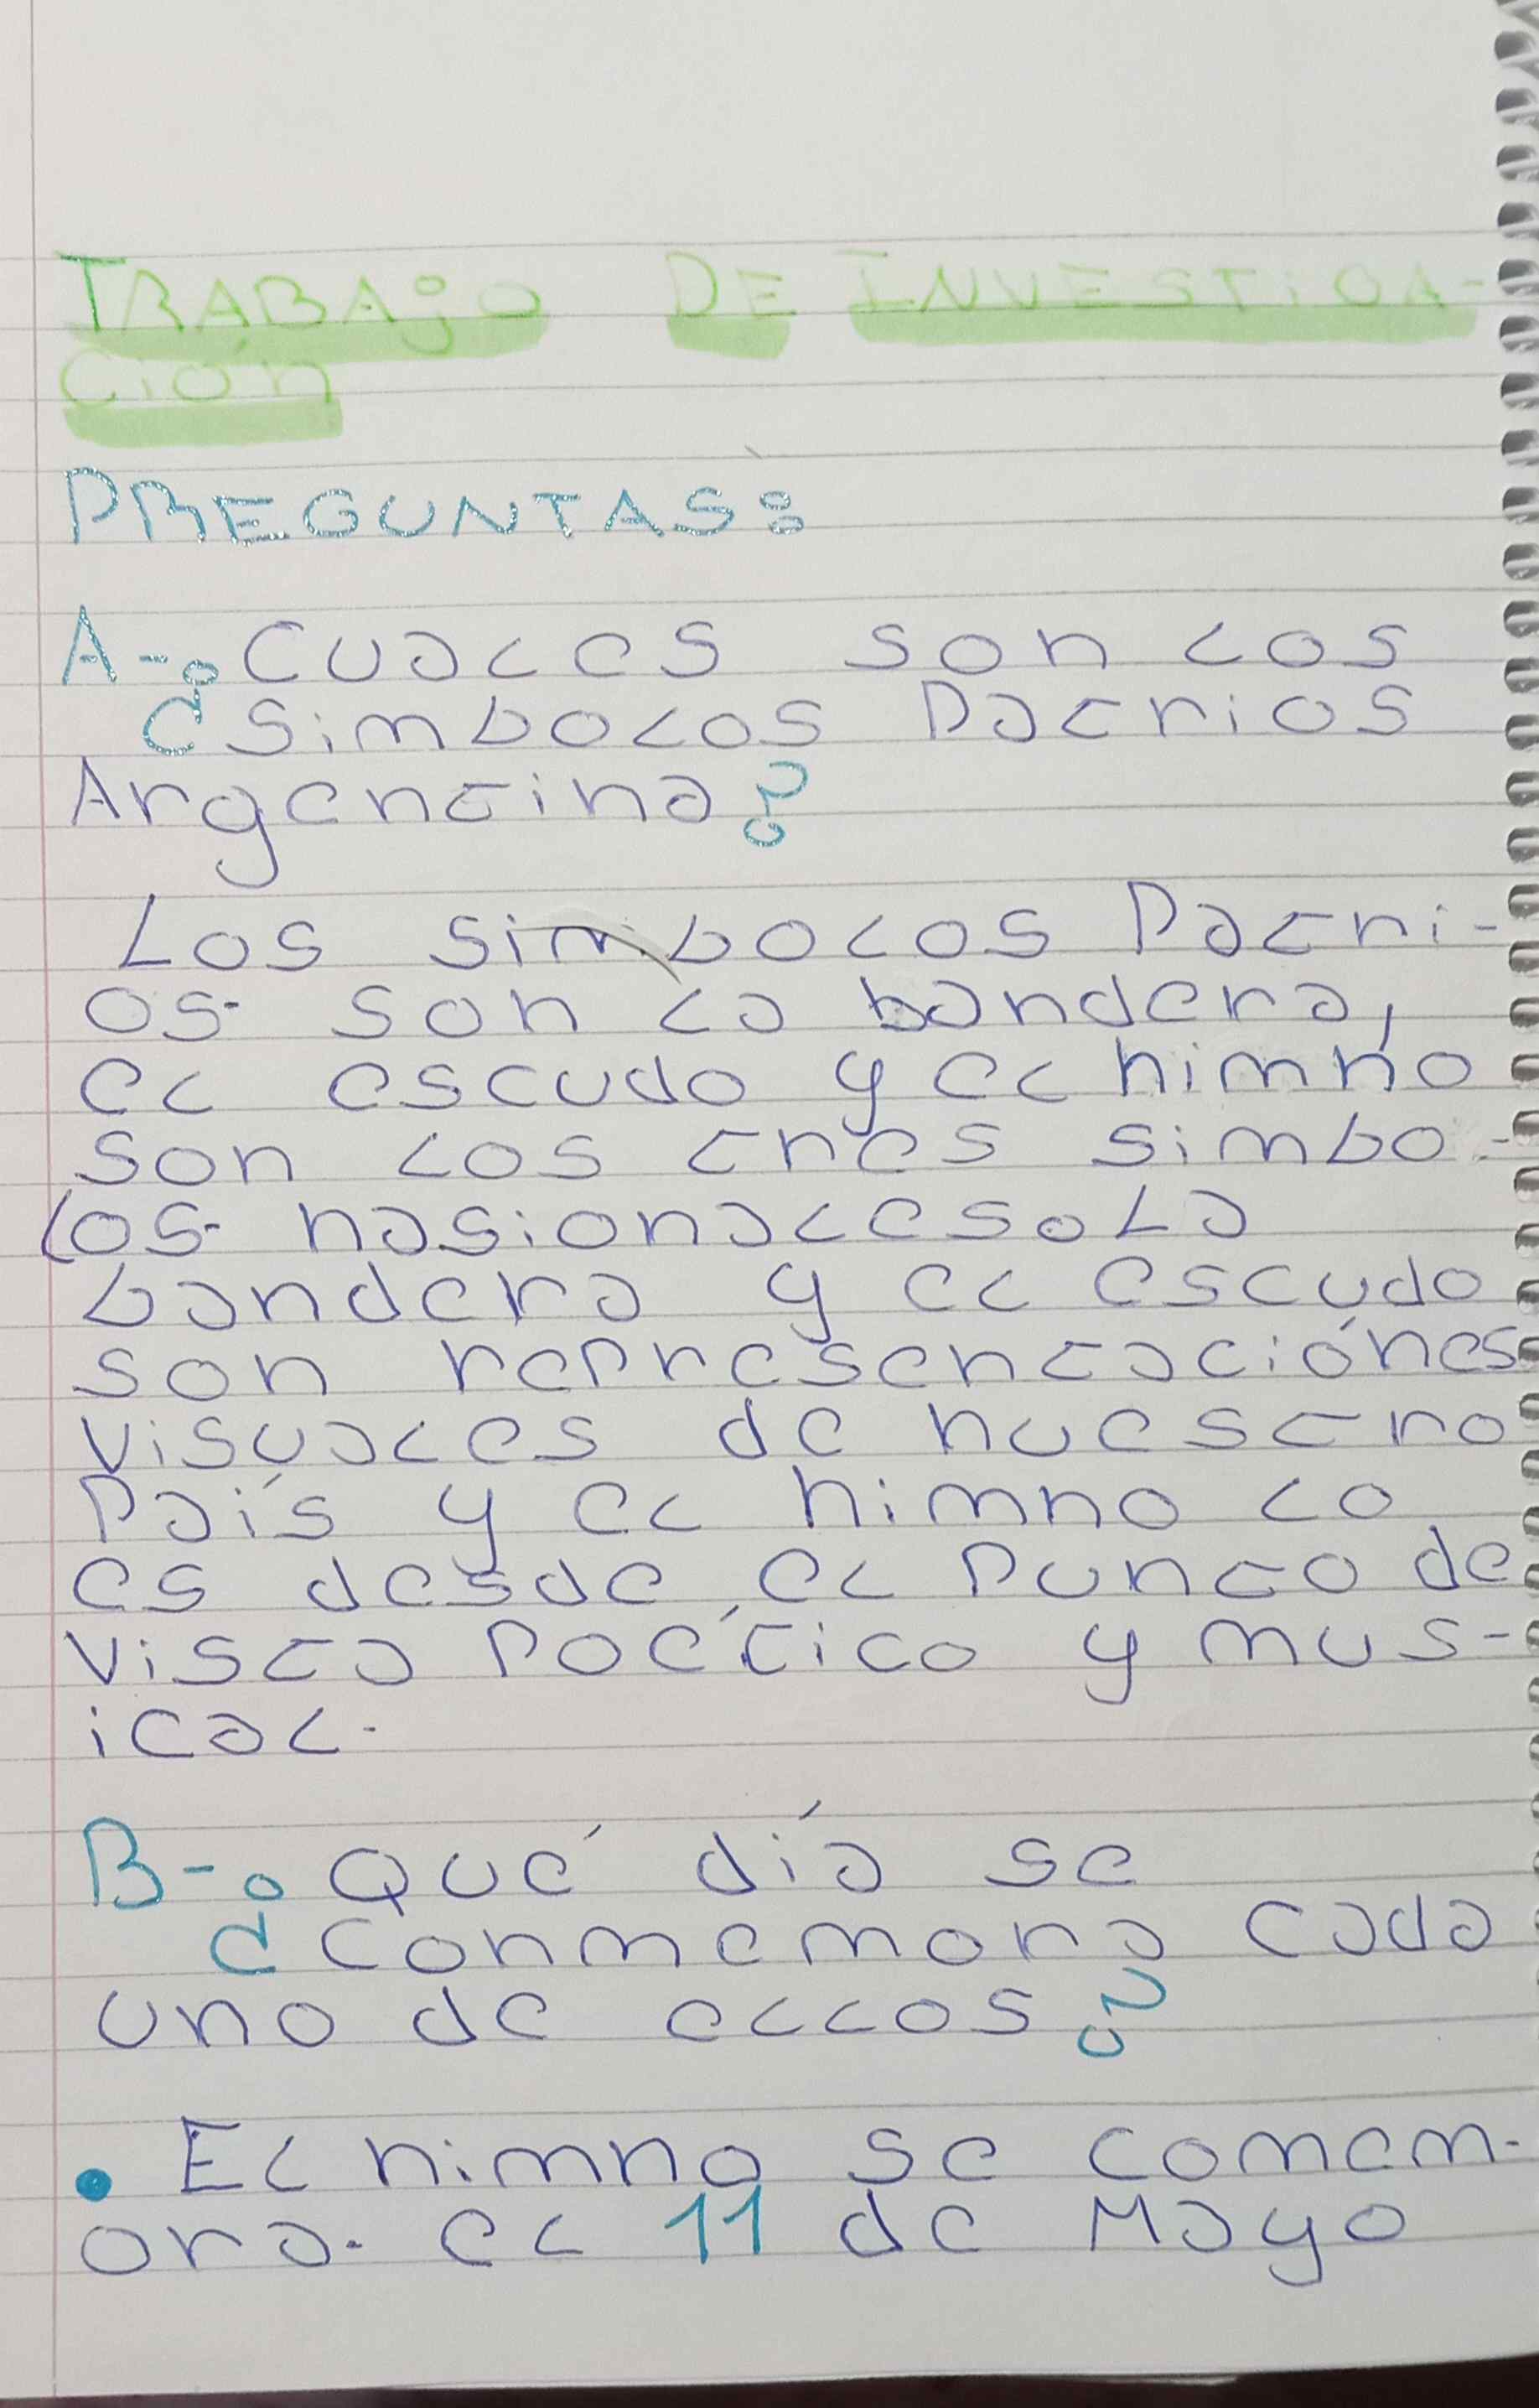 TRABAjO DE INVESTIGA-
Ción
PREGUNTAS:
A-¿Cuales son los
simbolos Patrios
Argentina?
Los simbolos Patri-
os son la bandera,
el escudo y el himno
son los tres simbo-
los nasionales. La
bandera y el escudo
son representaciónes
visuales de nuestro
País y el himno lo
es desde el Punto de
vista Poético y mus-
ical.
B-¿Qué día se
conmemora cada
uno de ellos?
• El himno se comem-
ora. el 11 de Mayo